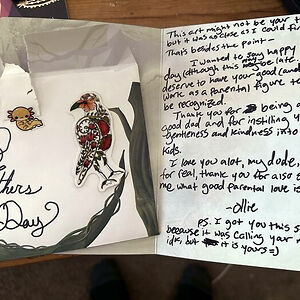 thers
Day
This art might not be your
but it was as close as I could fi
That's besides the point -
I wanted to say happy
day (although this may be late
deserve to have your good (and
work as a parental figure t
be recognized.
Thank you for being
good dad and for instilling y
gentleness and kindness into
kids.
I love you alot, my dude,
for real, thank you for also s
me what good parental love is
-Ollie
P.S. I got you this s
because it was calling your n
idk, but it is yours =)